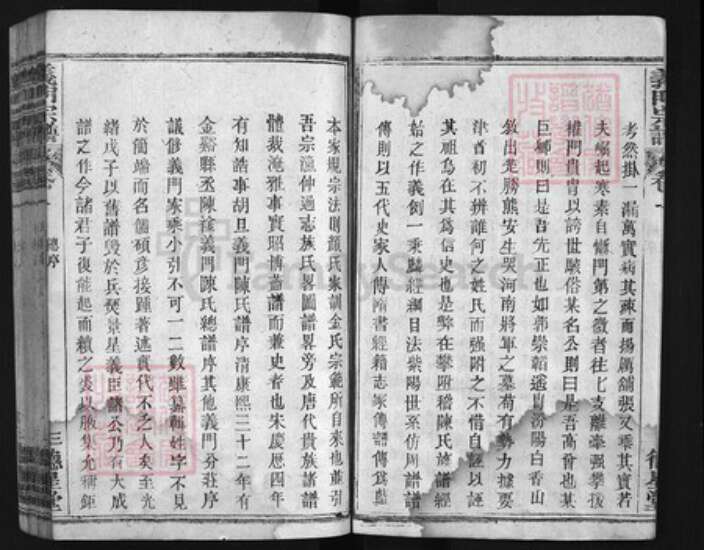 考然掛一漏萬實病其疎而揚厲舖張又乖其實若
夫崛起寒素自慚門第之微者往七支離牽强攀援
維門貴冑以誇世駭俗某名公則曰是吾高曾也某
巨卿則曰是吾先正也如郭崇韜遙冒汾陽白香山
敘出楚勝熊安生哭河南將軍之墓苟有勢力據要
津首初不辨誰何之姓氏而强附之不惜自誣以誣
其祖烏在其爲信史也是弊在攀附稽陳氏族譜經
始之作義例一乘縣經綱目法紫陽世系仿周譜譜
傳則以五代史家人傳隋書經籍志家傳譜傳爲藍
本家規宗法則顏氏家訓金氏宗範所自來也蓋引
吾宗漁仲過志族氏畧圖譜畧旁及唐代貴族諸譜
體裁淹雅事實昭博蓋譜而兼史者也朱慶曆四年
有知誥事胡旦義門陳氏譜序清康熙三十二年有
金谿縣丞陳 義門陳氏總譜序其他義門分莊序
議修義門家乘小引不可一二數雖纂輯姓字不見
於簡端而名儒碩彥接踵著述實代不乏人矣至光
緒戊子以舊譜毁於兵燹景星義臣諸公乃有大成
譜之作今諸君子復能起而續之裘以腋集允稱鉅
總序
三德星堂